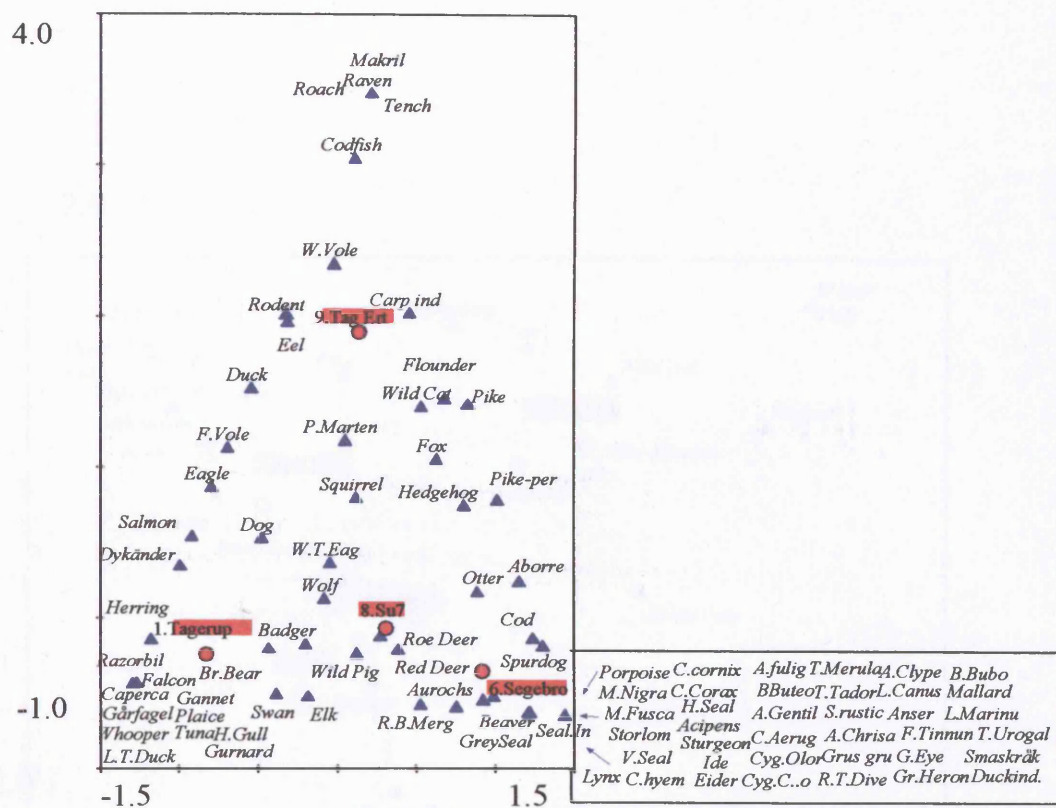 4.0
Makril
Roach Raven
Tench
Codfish
W.Vole
Rodent Carp ind
9.Tag Ert
Eel
Flounder
Duck Wild Cat Pike
P.Marten
F.Vole Fox
Eagle Squirrel Hedgehog Pike-per
Salmon Dog
Dykänder W.T.Eag Aborre
Wolf Otter
Herring 8.Su7 Cod
1.Tagerup Badger Roe Deer
Razorbil Falcon Br.Bear Wild Pig Red Deer Spurdog
Caperca Gannet Aurochs 6.Segebro
-1.0 Gårfagel Plaice Swan Elk R.B.Merg Beaver Seal.In
Whooper Tuna H.Gull GreySeal
L.T.Duck Gurnard
Porpoise C.cornix A.fulig T.Merula A.Clype B.Bubo
M.Nigra C.Corax BButeo T.Tador L.Canus Mallard
M.Fusca H.Seal A.Gentil S.rustic Anser L.Marinu
Storlom Acipens Sturgeon C.Aerug A.Chrisa F.Tinnun T.Urogal
V.Seal Ide Cyg.Olor Grus gru G.Eye Smaskråk
Lynx C.hyem Eider Cyg.C..o R.T.Dive Gr.Heron Duckind.
-1.5 1.5